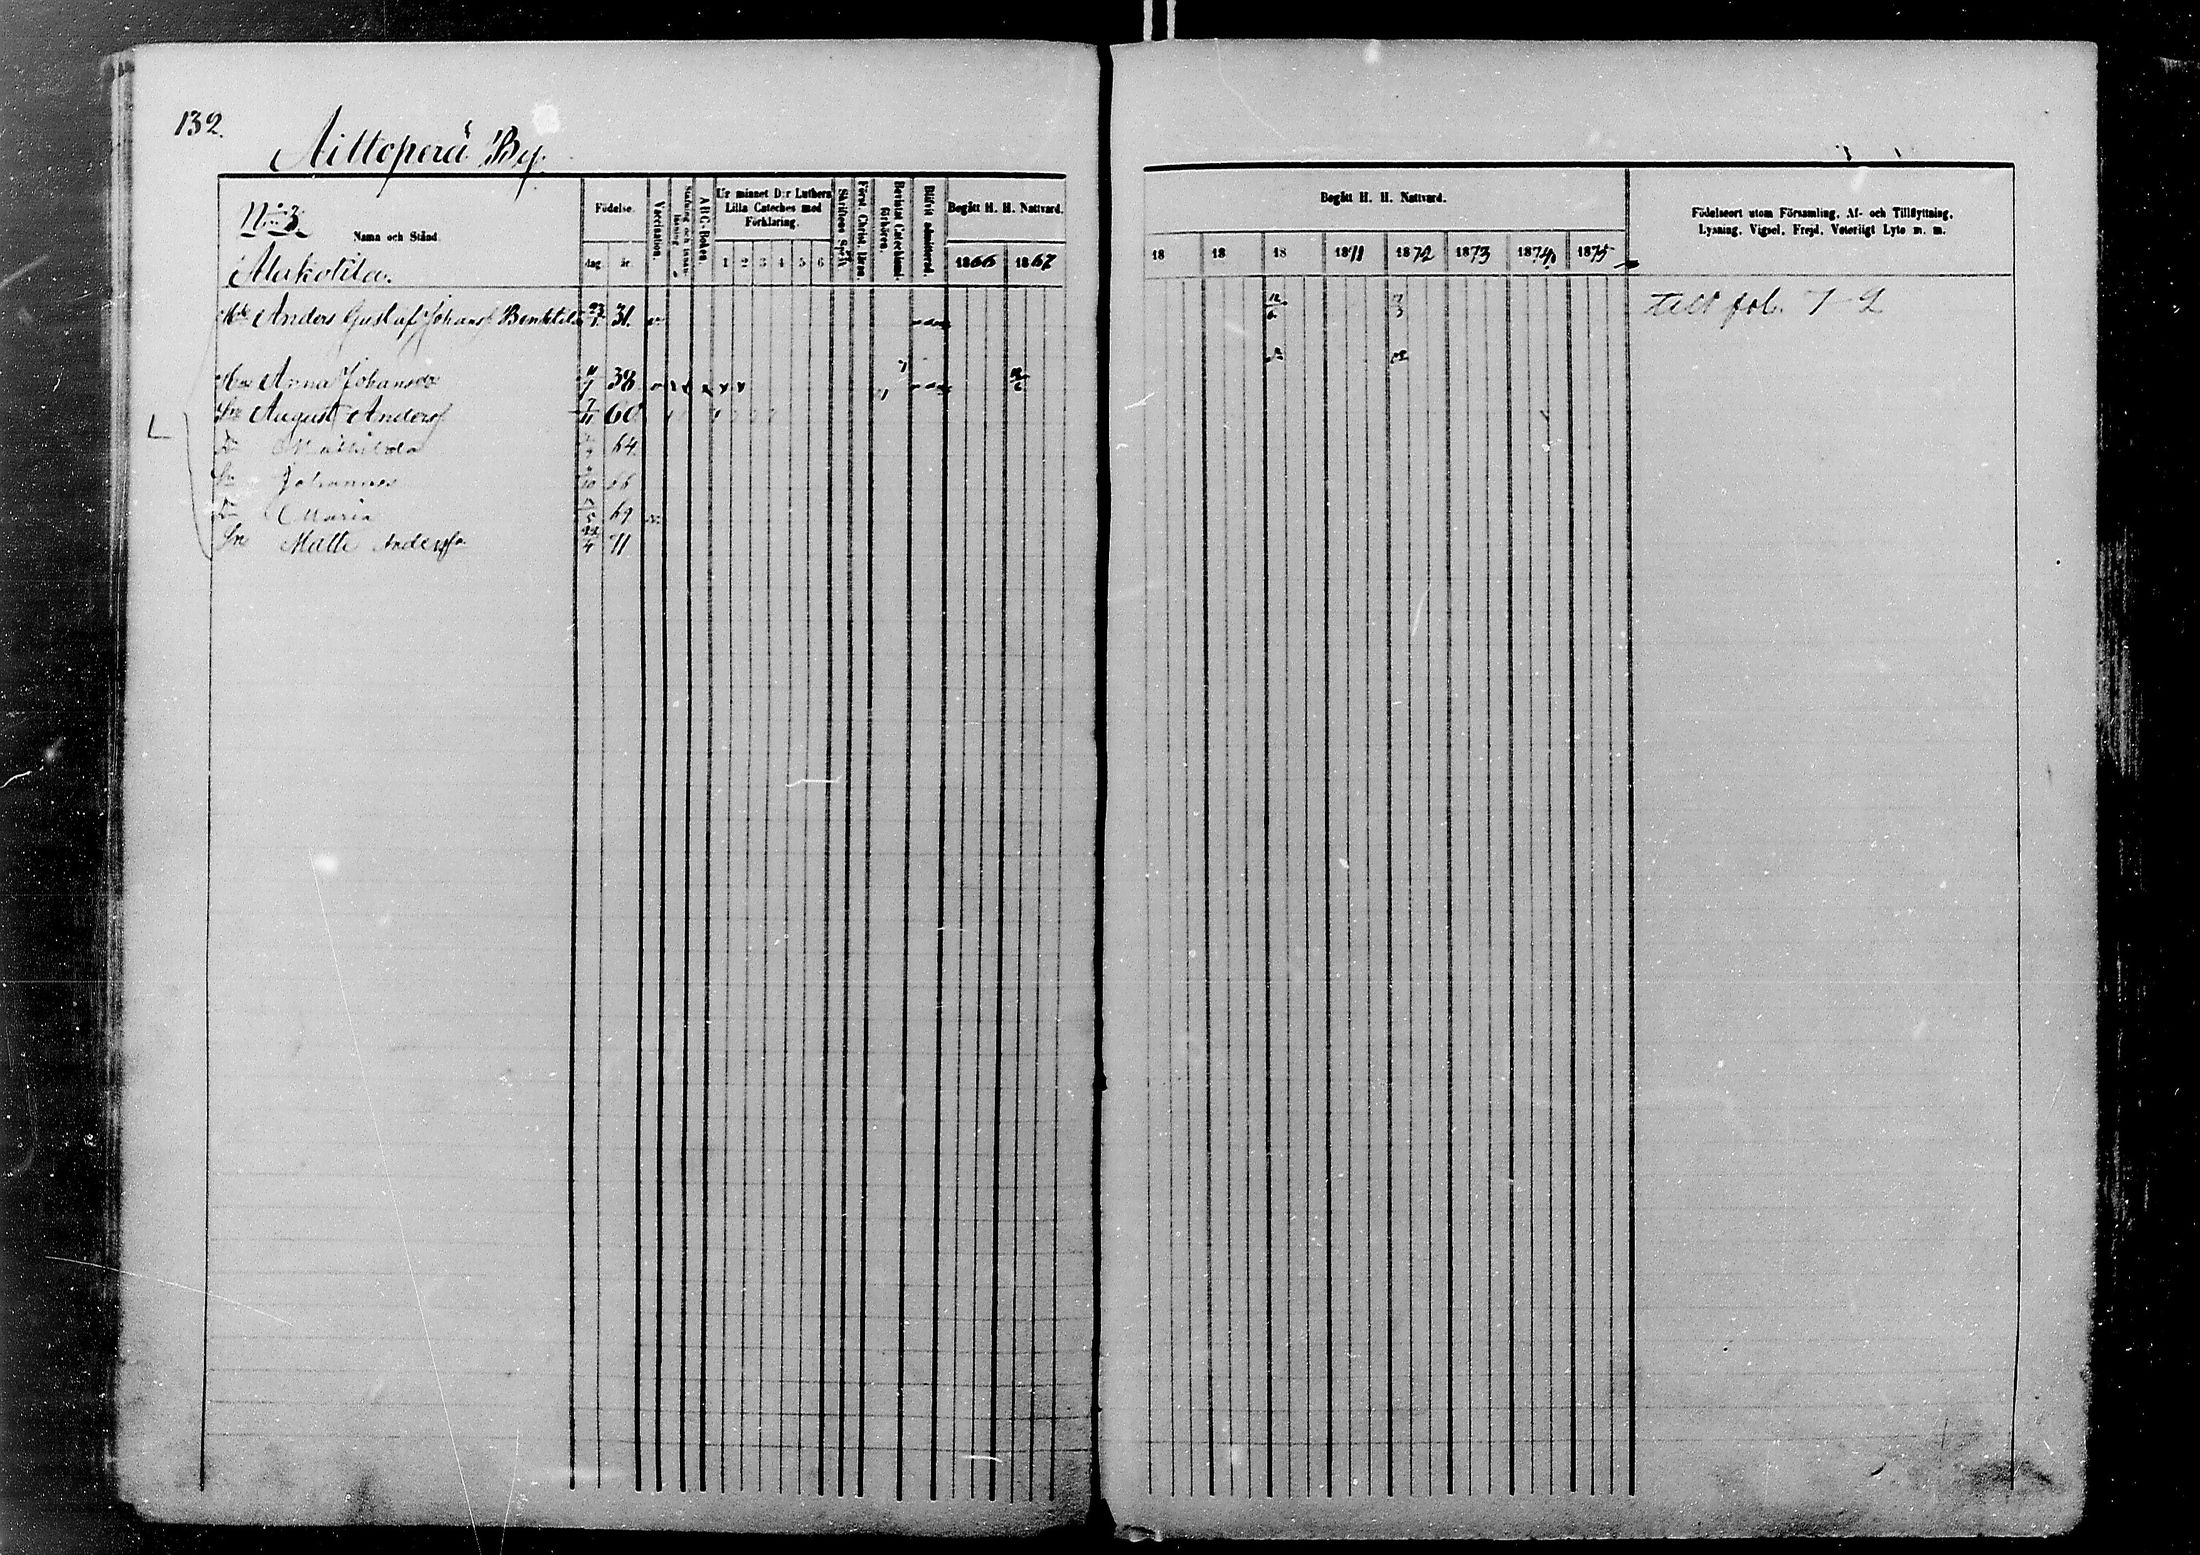 132.
Aittoperä By.
No 3.
Namn och Stånd.
Alakotila.
Födelse.
dag. år.
Vaccination.
ABC-Boken.
Ur minnet D:r Luthers
Lilla Cateches med
Förklaring.
1 2 3 4 5 6
Skriftens Språk
Först. Christ. läran.
Bevistat Catechismi-
förhören.
Blifvit admitterad.
Begått H. H. Nattvard.
1866 1867
Anders Gustaf Johansf Benktila 31. v
Hu Anna Johansdr 11/7 38 12/6
Sn August Andersf 7/11 60
Dr Mathilda 64
Sn Johannes 66
Dr Maria 69
Sn Matts Andersson 22/4 71
Begått H. H. Nattvard.
18 18 18 1871 1872 1873 1874 1875
Födelseort utom Församling, Af- och Tillflyttning,
Lysning, Vigsel, Frejd, Veterligt Lyte m. m.
till fol. 7-2